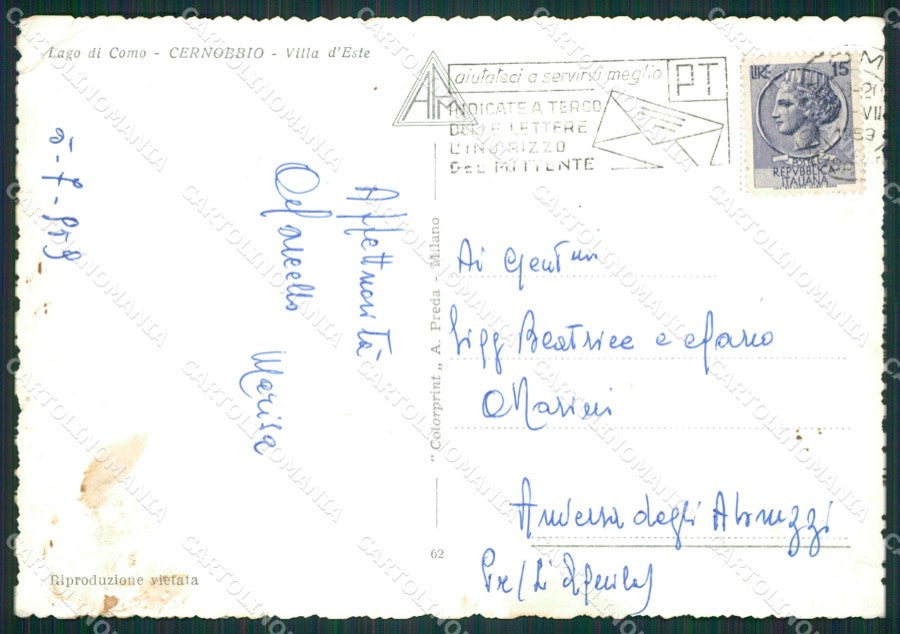 Lago di Como - CERNOBBIO - Villa d'Este
5-8-959
Affettuosità
Marcello
Marisa
Riproduzione vietata
"Colorprint" A. Preda - Milano
62
APM
aiutateci a servirvi meglio
PT
INDICATE A TERGO
DELLE LETTERE
L'INDIRIZZO
DEL MITTENTE
LIRE 15
REPVBBLICA
ITALIANA
VIII
1959
Ai Gent.mi
Sigg Beatrice e Mario
Marini
Anversa degli Abruzzi
Pr/ L'Aquila
CARTOLINOMANIA